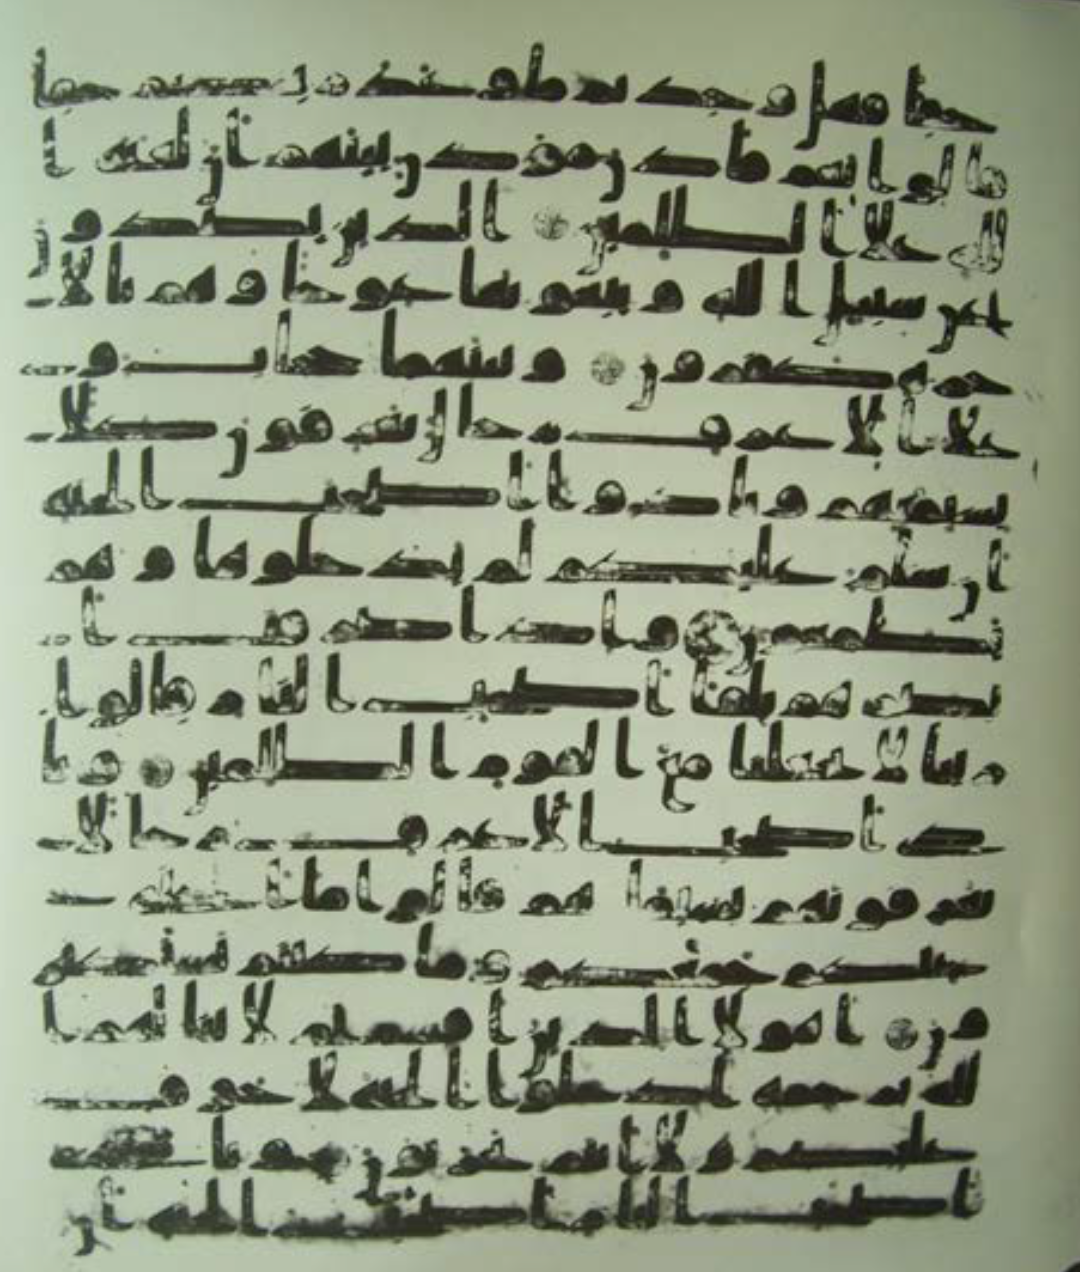 حقا فهل وجدتم ما وعد ربكم حقا
قالوا نعم فاذن موذن بينهم ان لعنه ا
لله على الظلمين الذين يصدون
عن سبيل الله و يبغونها عوجا و هم بالا
خره كفرون و بينهما حجاب و
على الاعرف رجال يعرفون كلا
بسيمهم و نادوا اصحب الجنه
ان سلم عليكم لم يدخلوها و هم
يطمعون و اذا صرفت ا
بصرهم تلقا اصحب النار قالوا
ربنا لا تجعلنا مع القوم الظلمين و نا
دى اصحب الاعرف رجالا
يعرفونهم بسيمهم قالوا ما اغنى
عنكم جمعكم و ما كنتم تستكبر
ون اهولا الذين اقسمتم لا ينالهم ا
لله برحمه ادخلوا الجنه لا خوف
عليكم و لا انتم تحزنون و نادى
اصحب النار اصحب الجنه ان